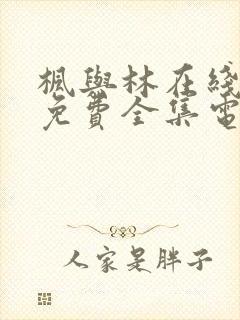 楓與林在綫
免費全集電
人家是胖子